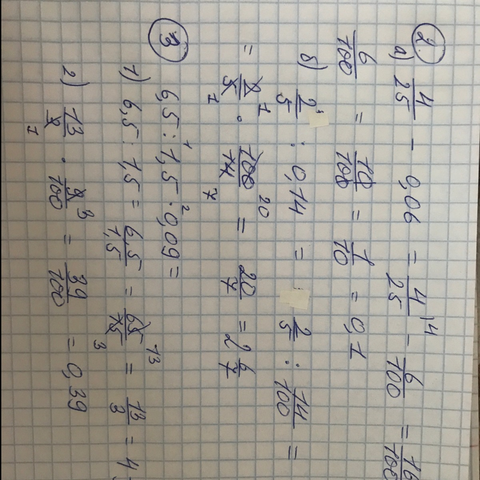 2.
а) 4/25 - 0,06 = 4/25 - 6/100 = 16/100
6/100 = 10/100 = 1/10 = 0,1
б) 2/5 : 0,14 = 2/5 : 14/100 =
= 2/5 · 100/14 = 20/7 = 2 6/7
3
6,5 : 1,5 · 0,09 =
1) 6,5 : 1,5 = 6,5/1,5 = 65/15 = 13/3 = 4
2) 13/3 · 9/100 = 39/100 = 0,39